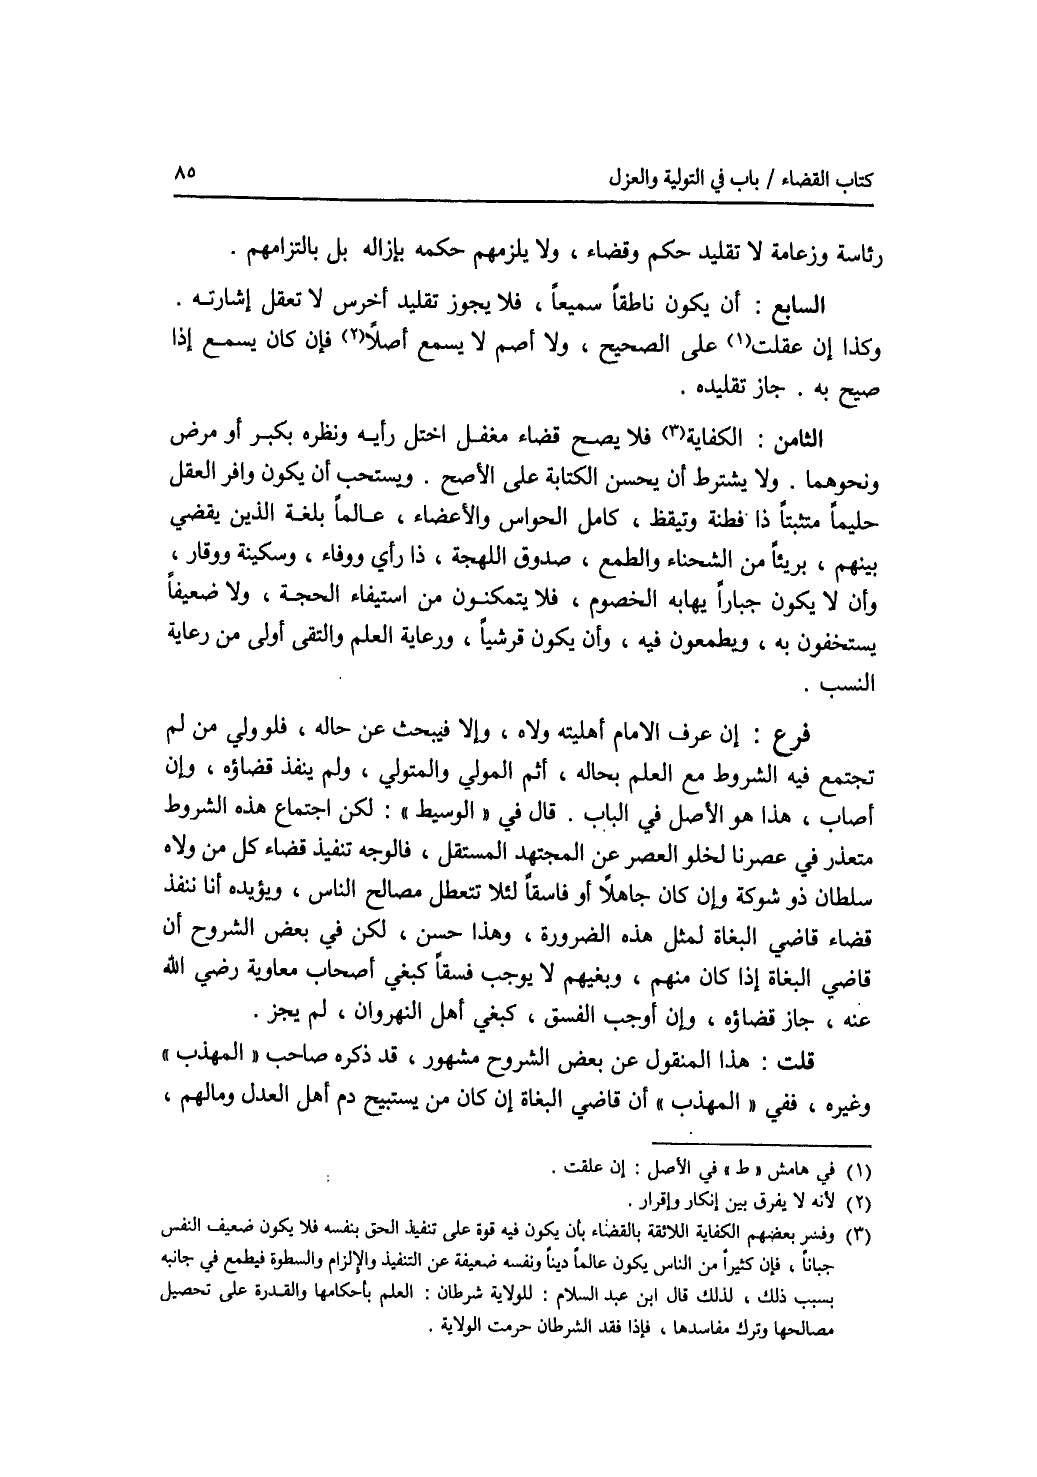 كتاب القضاء / باب في التولية والعزل
٨٥
رئاسة وزعامة لا تقليد حكم وقضاء ، ولا يلزمهم حكمه بإزاله بل بالتزامهم .
السابع : أن يكون ناطقاً سميعاً ، فلا يجوز تقليد أخرس لا تعقل إشارته .
وكذا إن عقلت(١) على الصحيح ، ولا أصم لا يسمع أصلًا(٢) فإن كان يسمع إذا
صيح به . جاز تقليده .
الثامن : الكفاية(٣) فلا يصح قضاء مغفل اختل رأيه ونظره بكبر أو مرض
ونحوهما . ولا يشترط أن يحسن الكتابة على الأصح . ويستحب أن يكون وافر العقل
حليماً متثبتاً ذا فطنة وتيقظ ، كامل الحواس والأعضاء ، عالماً بلغة الذين يقضي
بينهم ، بريئاً من الشحناء والطمع ، صدوق اللهجة ، ذا رأي ووفاء ، وسكينة ووقار ،
وأن لا يكون جباراً يهابه الخصوم ، فلا يتمكنون من استيفاء الحجة ، ولا ضعيفاً
يستخفون به ، ويطمعون فيه ، وأن يكون قرشياً ، ورعاية العلم والتقى أولى من رعاية
النسب .
فرع : إن عرف الامام أهليته ولاه ، وإلا فيبحث عن حاله ، فلو ولي من لم
تجتمع فيه الشروط مع العلم بحاله ، أثم المولي والمتولي ، ولم ينفذ قضاؤه ، وإن
أصاب ، هذا هو الأصل في الباب . قال في « الوسيط » : لكن اجتماع هذه الشروط
متعذر في عصرنا لخلو العصر عن المجتهد المستقل ، فالوجه تنفيذ قضاء كل من ولاه
سلطان ذو شوكة وإن كان جاهلًا أو فاسقاً لئلا تتعطل مصالح الناس ، ويؤيده أنا ننفذ
قضاء قاضي البغاة لمثل هذه الضرورة ، وهذا حسن ، لكن في بعض الشروح أن
قاضي البغاة إذا كان منهم ، وبغيهم لا يوجب فسقاً كبغي أصحاب معاوية رضي الله
عنه ، جاز قضاؤه ، وإن أوجب الفسق ، كبغي أهل النهروان ، لم يجز .
قلت : هذا المنقول عن بعض الشروح مشهور ، قد ذكره صاحب « المهذب »
وغيره ، ففي « المهذب » أن قاضي البغاة إن كان من يستبيح دم أهل العدل ومالهم ،
(١) في هامش « ط » في الأصل : إن علقت .
(٢) لأنه لا يفرق بين إنكار وإقرار .
(٣) وفسر بعضهم الكفاية اللائقة بالقضاء بأن يكون فيه قوة على تنفيذ الحق بنفسه فلا يكون ضعيف النفس
جباناً ، فإن كثيراً من الناس يكون عالماً ديناً ونفسه ضعيفة عن التنفيذ والإلزام والسطوة فيطمع في جانبه
بسبب ذلك ، لذلك قال ابن عبد السلام : للولاية شرطان : العلم بأحكامها والقدرة على تحصيل
مصالحها وترك مفاسدها ، فإذا فقد الشرطان حرمت الولاية .